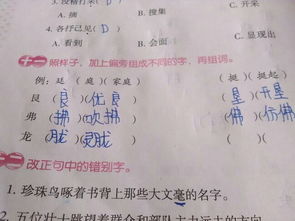 3. 没精打采( D )
A. 摘 B. 搜集 C. 开采
4. 各抒己见( D )
A. 看到 B. 会面 C. 显现出
十一 照样子,加上偏旁组成不同的字,再组词。
例:廷 ( 庭 )( 家庭 ) ( 挺 )( 挺起 )
艮 ( 良 )( 优良 ) ( 垦 )( 开垦 )
弗 ( 拂 )( 吹拂 ) ( 佛 )( 仿佛 )
龙 ( 胧 )(
十二 改正句中的错别字。
1. 珍珠鸟啄着书背上那些大文毫的名字。
2. 五位壮士眺望着群众和部队主力远去的方向